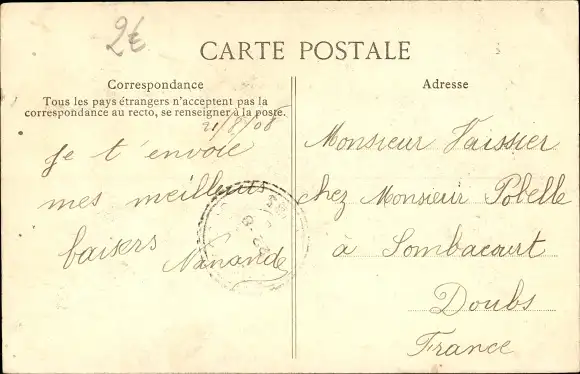 2€
CARTE POSTALE
Correspondance
Tous les pays étrangers n'acceptent pas la
correspondance au recto, se renseigner à la poste.
21/8/08
Je t'envoie
mes meilleures
baisers
Nanande
Adresse
Monsieur Vaissier
chez Monsieur Pobelle
à Sombacourt
Doubs
France